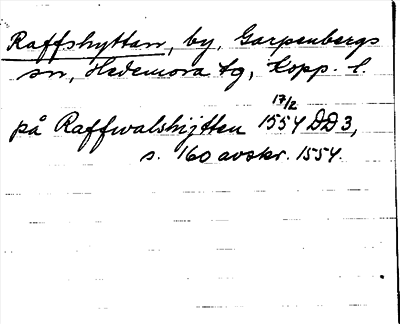 Raffshyttan, by, Garpenbergs
sn, Hedemora tg, Kopp. l.
på Raffwalshijtten 17/2 1554 DD3,
s. 160 avskr. 1554.